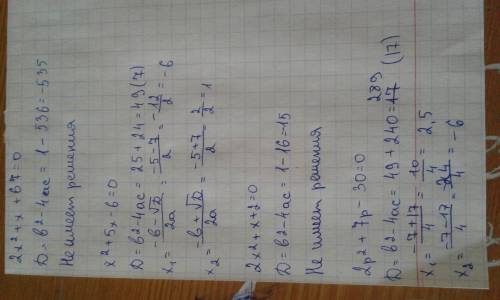 2x²+x+67=0
D=в2-4ас=1-536=-535
Не имеет решения
x²+5x-6=0
D=в2-4ас=25+24=49(7)
x₁=-в-√D/2a=-5-7/2=-12/2=-6
x₂=-в+√D/2a=-5+7/2=2/2=1
2x²+x+2=0
D=в2-4ас=1-16=15
Не имеет решения
2p²+7p-30=0
D=в2-4ас=49+240=289 (17)
x₁=-7+17/4=10/4=2,5
x₂=-7-17/4=-24/4=-6